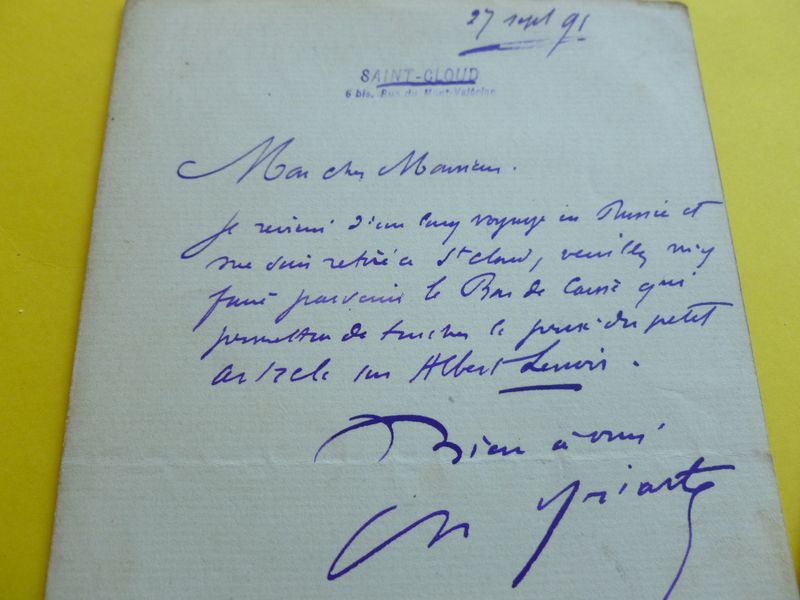 27 sept 91
SAINT-CLOUD
6 bis, Rue du Mont-Valérien
Mon cher Monsieur.
Je reviens d'un long voyage en Russie et
me suis retiré à St Cloud, veuillez m'y
faire parvenir le Bon de Caisse qui
permettra de toucher le prix du petit
article sur Albert Lenoir.
Bien à vous
Ch Yriarte